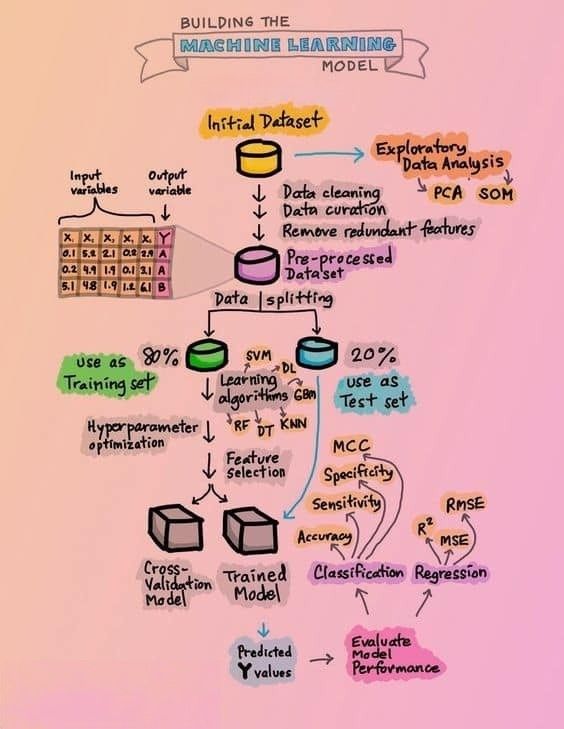 BUILDING THE
MACHINE LEARNING
MODEL
Initial Dataset
Exploratory
Data Analysis
PCA SOM
Input
variables
Output
variable
Data cleaning
Data curation
Remove redundant features
X₁ X₂ X₃ X₄ X₅ Y
0.1 5.2 2.1 0.2 2.9 A
0.2 4.9 1.9 0.1 3.1 A
5.1 4.8 1.9 1.2 6.1 B
Pre-processed
Dataset
Data splitting
use as
Training set
80%
20%
use as
Test set
SVM
DL
Learning
algorithms
GBM
RF DT KNN
Hyperparameter
optimization
Feature
selection
MCC
Specificity
Sensitivity
Accuracy
RMSE
R²
MSE
Cross-
Validation
Model
Trained
Model
Classification
Regression
Predicted
Y values
Evaluate
Model
Performance